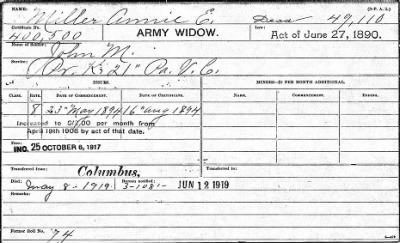 NAME: Miller Annie E. Dead 49,110
Certificate No. 400,500 ARMY WIDOW. Act of June 27, 1890.
Name of Soldier: John M.
Service: Pr. K, 21" Pa. V. C.
ISSUES. MINORS—$2 PER MONTH ADDITIONAL.
CLASS. RATE. DATE OF COMMENCEMENT. DATE OF CERTIFICATE. NAME. COMMENCEMENT. ENDING.
8 23" May 1894 16" Aug 1894
Increased to $12.00 per month from
April 19th 1908 by act of that date.
INC. 25 OCTOBER 6, 1917
Transferred from: Columbus, Transferred to:
Died: May 8-1919. Bureau notified: 3-1081- JUN 12 1919
Remarks:
Former Roll No. 74